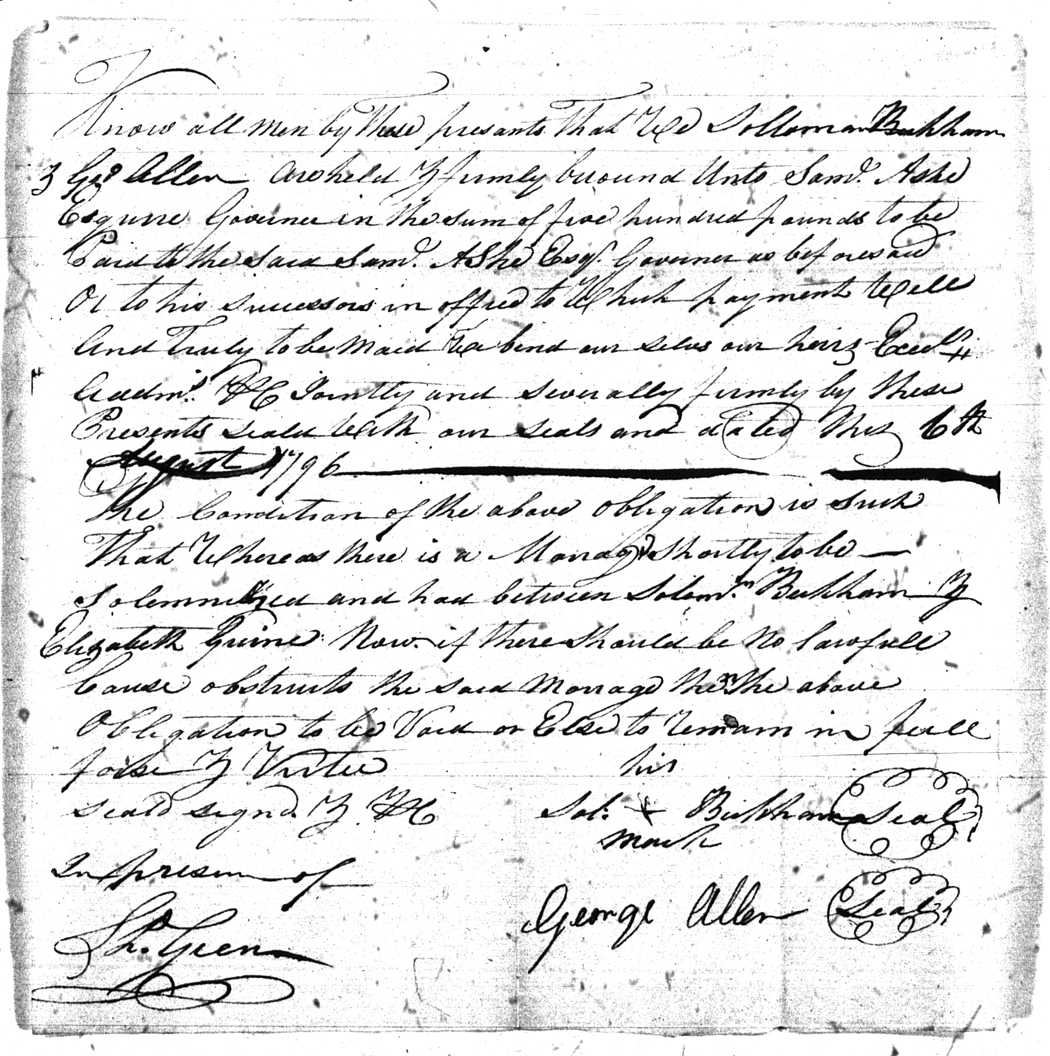 Know all men by these presants that We Solloman Bukham
& Geo Allen are held & firmly beound Unto Samd. Ashe
Esquire Governer in the sum of five hundred pounds to be
Paid to the said Samd. Ashe Esqr. Governer as beforesaid
Or to his successors in offies to Which payment Well
And Truly to be Maid We bend our selves our heirs Exed
Aadmrs. &C Jointly and severally firmly by these
Presents seald With our seals and dated this 6th
August 1796
The Condition of the above obligation is such
That Whereas there is a Marrage Shortly to be
Solemnized and had between Solomn. Bukham &
Elizabeth Now if there should be no lawfull
Cause obstructs the said Marrage then the above
Obligation to be Void or Else to remain in full
forse & Virtue
seald signd. & &C
In presen of
his
Sol. X Bukham seal
mark
George Allen Seal
Sh. Geen